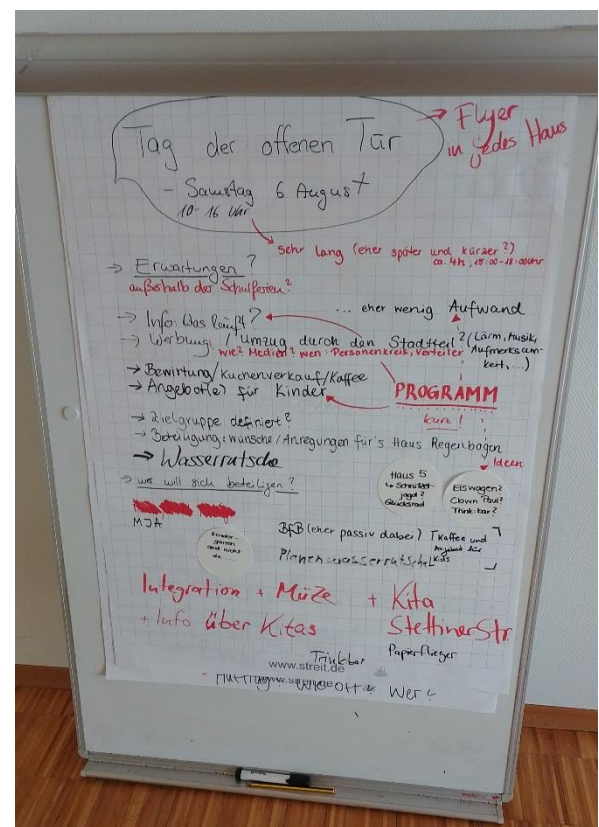 Tag der offenen Tür
- Samstag 6 August
10-16 Uhr
→ Flyer
in jedes Haus
sehr lang (eher später und kürzer?)
ca. 4h, 15:00-18:00 Uhr
→ Erwartungen?
außerhalb der Schulferien?
... eher wenig Aufwand
→ Info: Was läuft?
→ Werbung / Umzug durch den Stadtteil? (Lärm, Musik,
Aufmerksam-
keit, ...)
wie? Medien? wen: Personenkreis, Verteiler
→ Bewirtung/Kuchenverkauf/Kaffee
→ Angebot(e) für Kinder
PROGRAMM
kurz!
→ Zielgruppe definiert?
→ Beteiligung: Wünsche/Anregungen für's Haus Regenbogen
→ Wasserrutsche
Ideen
→ wer will sich beteiligen?
Haus 5
↳ Schnitzel-
jagd?
Glücksrad
Eiswagen?
Clown Paul?
Think-bar?
MJA
Kinder-
garten
sind nicht
da...
BfB (eher passiv dabei)
Kaffee und
Angebot für
Kids
Planenwasserrutsche
Integration + MüZe + Kita
Stettiner Str.
+ Info über Kitas
Trinkbar
Papierflieger
www.streit.de
Wer?